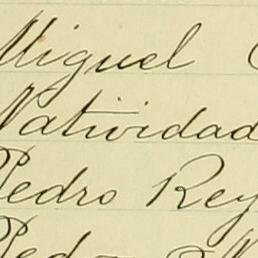 Miguel
Natividad
Pedro Rey
Pedro